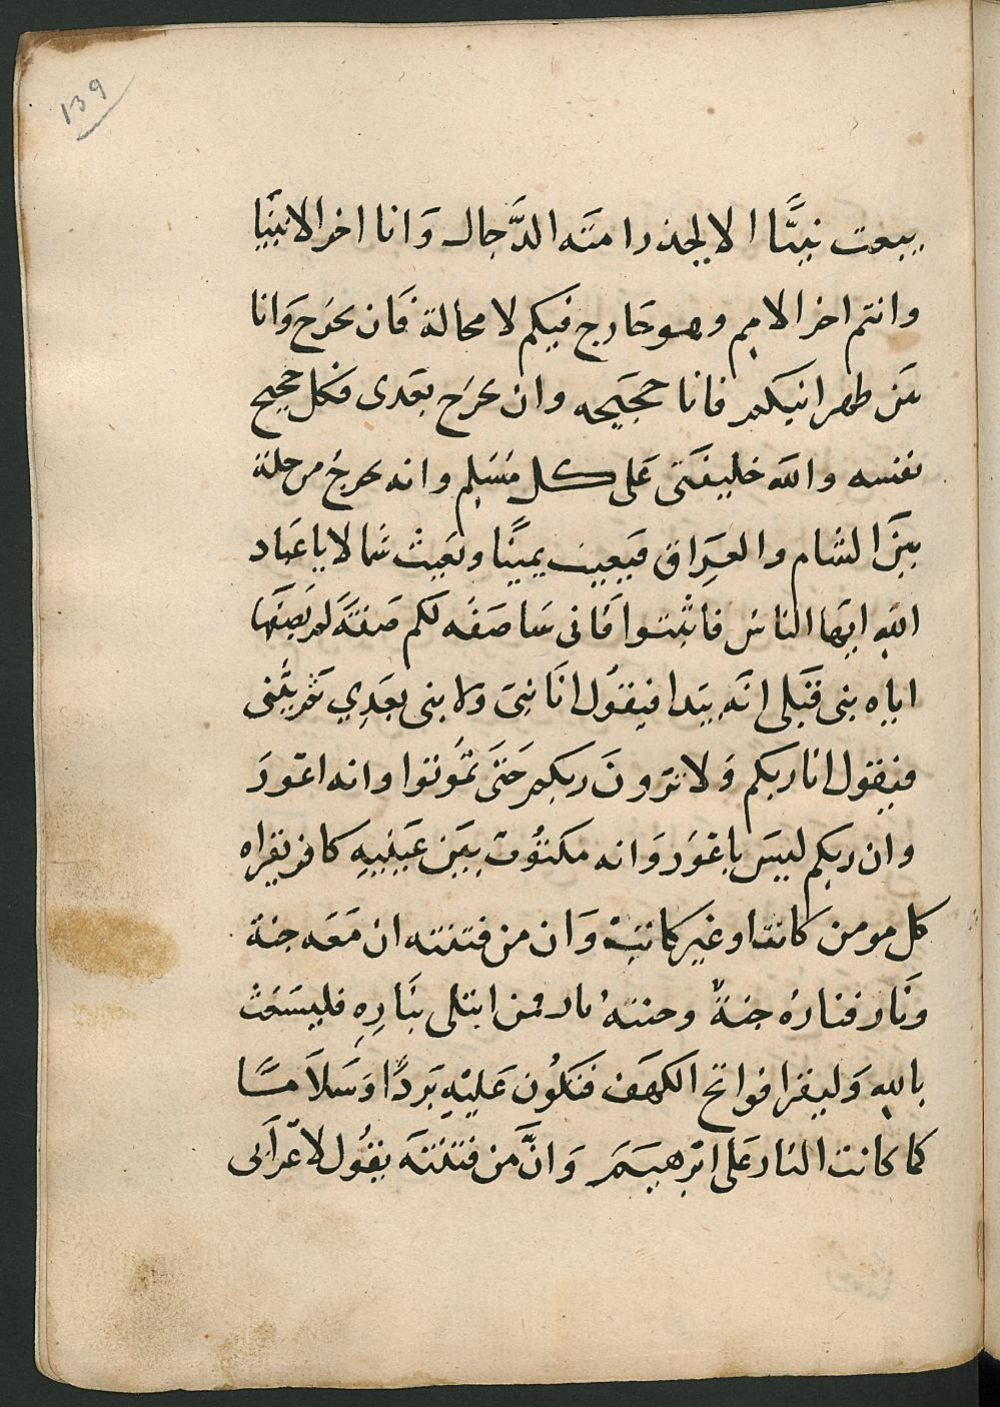 139
يبعت نبيَّا الا ليحذر امته الدَّجال وَانا اخر الانبيا
وانتم اخر الامم وهو خارج فيكم لا محالة فان يخرج وَانا
بين ظهرانيكم فانا حجيجه وان يخرج بعدى فكل حجيج
نفسه والله خليفتى عَلى كل مُسْلم وانه يخرج من حلة
بين الشام والعِرَاق فيعيث يمينًا ويعيث شمالا يا عباد
الله ايها الناس فاثبتوا فانى سَاصفه لكم صفَة لم يصفها
اياه بنى قبلى انه يبدا فيقوُل انا نبى ولا بنى بعدِي ثم يثنى
فيقول انا ربكم وَلا ترون ربكم حَتَى تموُتوا وانه اعور
وان ربكم ليس باعوَر وَانه مكتوُب بين عينيهِ كافر يقراه
كل مومن كاتب او غير كاتب وَان من فتنته ان مَعَه جنة
ونَار فنارهُ جنةٌ وجنتهُ نار فمن ابتلى بنَارِهِ فليستغث
باللهِ وَليقرا فواتح الكهف فتكوُن عَليْهِ بَردًا وَسَلاَ مًا
كما كانت النار عَلى ابْرهيمَ وَانَّ من فتنته يقوُل لاعْرَابى